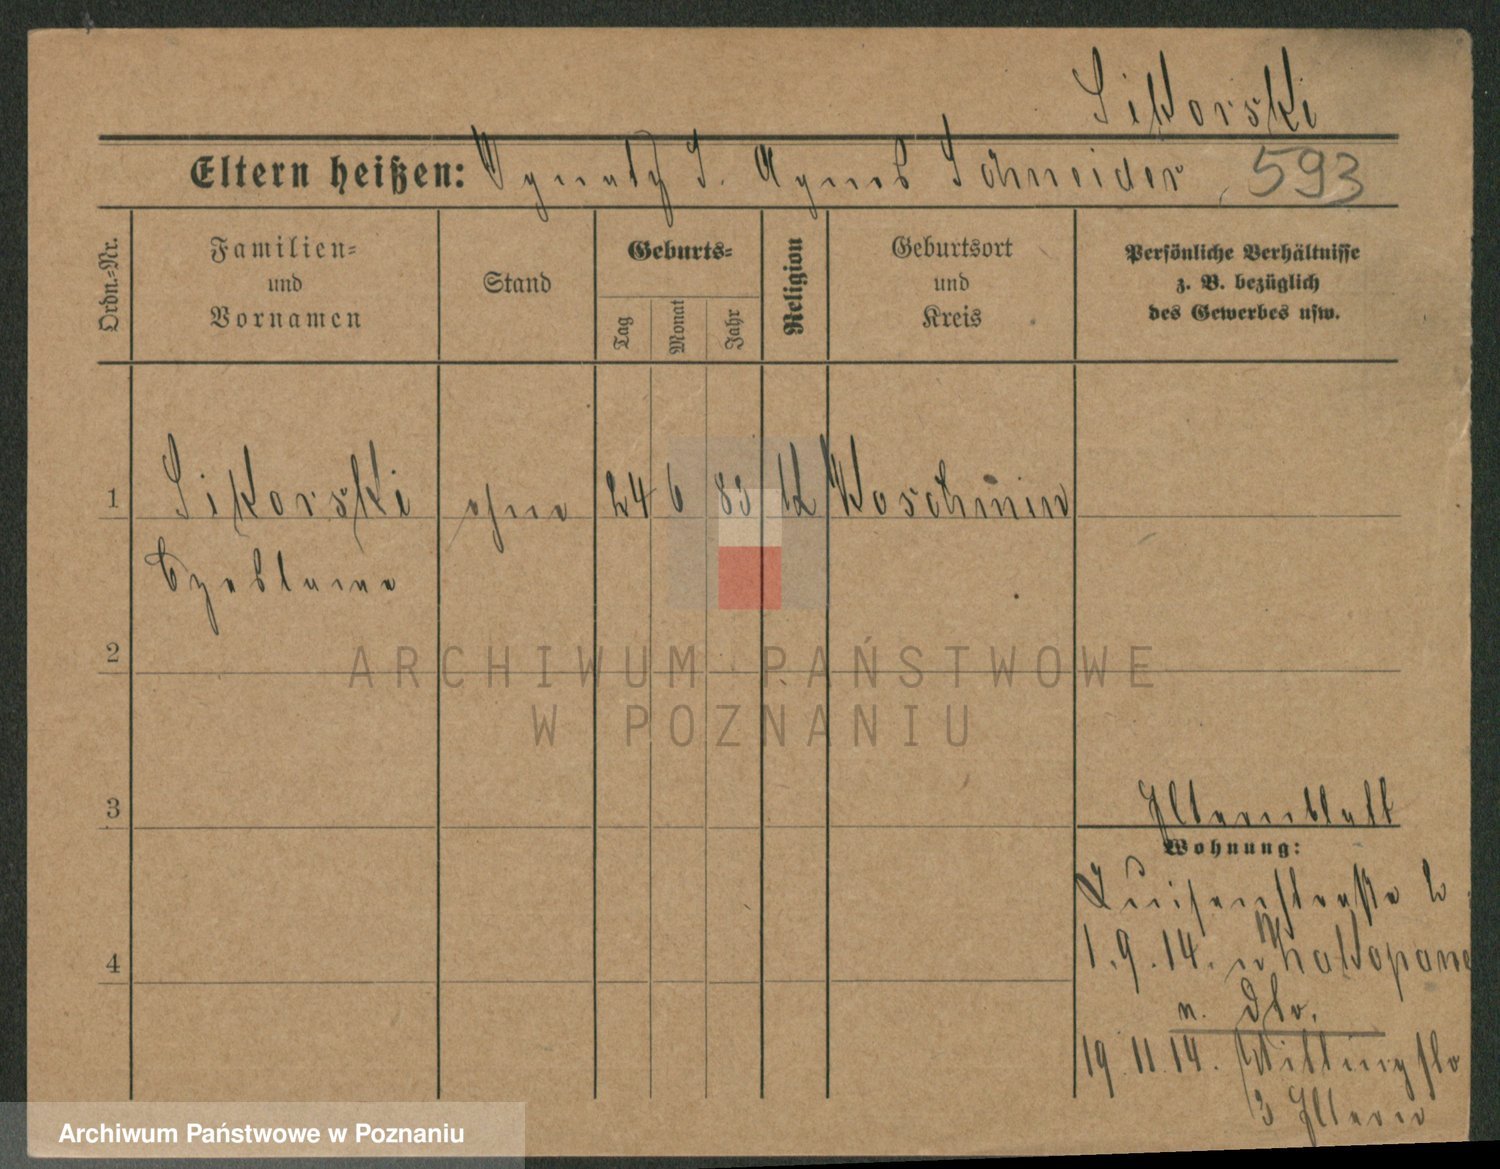 Sikorski
Eltern heißen: Ignatz S. Agnes Schneider 593
Ordn.-Nr.
Familien-
und
Vornamen
Stand
Geburts-
Tag
Monat
Jahr
Religion
Geburtsort
und
Kreis
Persönliche Verhältnisse
z. B. bezüglich
des Gewerbes usw.
1 Sikorski ohne 24 6 83 k Koschmin
Czeslawa
2
ARCHIWUM PAŃSTWOWE
W POZNANIU
3 Elternblatt
Wohnung:
Luisenstraße 2
4 1.9.14. n Zakopane
n. dto.
19.11.14. Wittingstr
3 Eltern
Archiwum Państwowe w Poznaniu